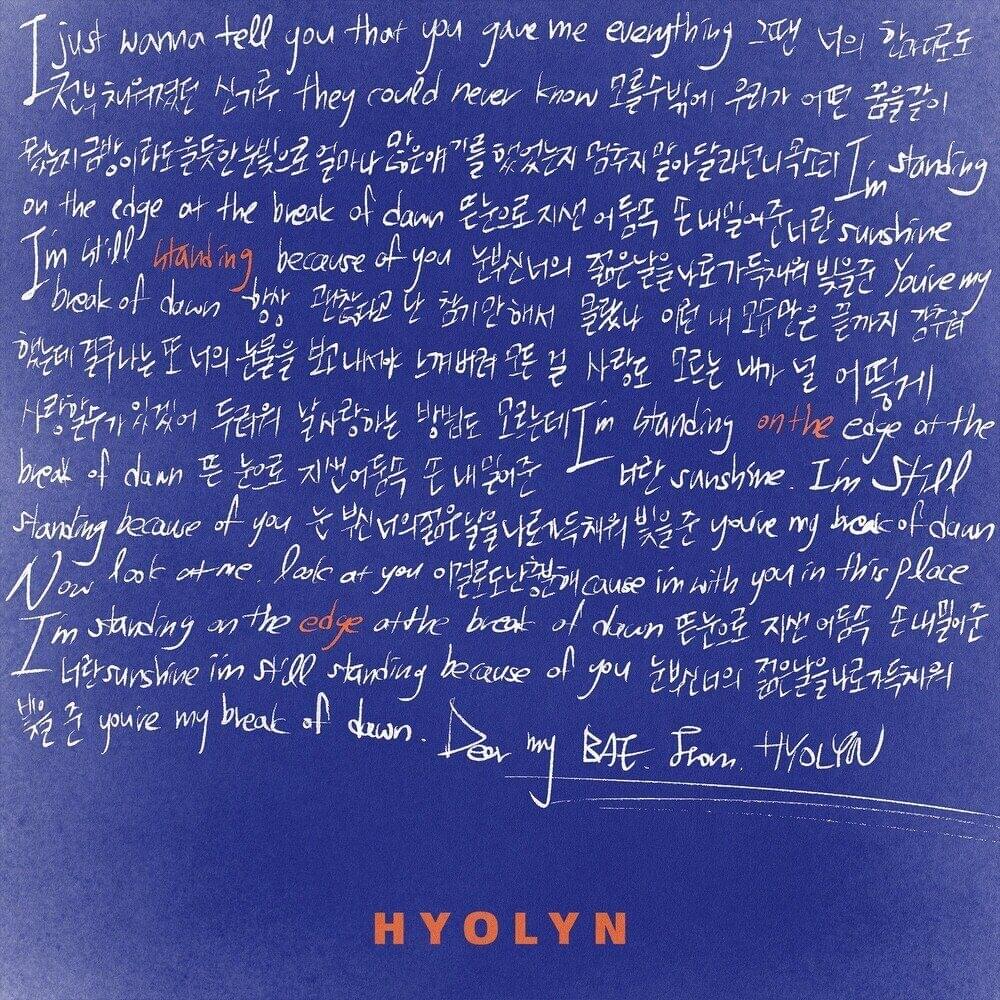 I just wanna tell you that you gave me everything 그땐 너의 한마디로도
전부 채워졌던 신기루. they could never know 모를수밖에 우리가 어떤 꿈을같이
꿨는지 금방이라도 울듯한 눈빛으로 얼마나 많은얘기를 했었는지 멈추지 말아달라던 니 목소리 I'm standing
on the edge at the break of dawn 뜬눈으로 지샌 어둠속 손 내밀어준 너란 sunshine
I'm still standing because of you 눈부신 너의 젊은날을 나로 가득채워 빛을준 You're my
break of dawn 항상 괜찮다고 난 참기만해서 몰랐나 이런 내 모습만은 끝까지 감추려
했는데 결국 나는 또 너의 눈물을 보고 내서야 느껴버려 모든 걸 사랑도 모르는 내가 널 어떻게
사랑할수가 있겠어 두려워 날사랑하는 방법도 모르는데 I'm standing on the edge at the
break of dawn 뜬 눈으로 지샌어둠속 손 내밀어준 너란 sunshine. I'm Still
standing because of you 눈 부신 너의젊은날을 나로가득채워 빛을 준 you're my break of dawn
Now look at me. look at you 이걸로도난충분해 cause i'm with you in this place
I'm standing on the edge at the break of dawn 뜬눈으로 지샌 어둠속 손내밀어준
너란 sunshine i'm still standing because of you 눈부신너의 젊은날을나로가득채워
빛을 준 you're my break of dawn. Dear my BAE. From. HYOLYN
HYOLYN